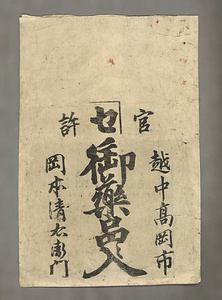 官許
越中高岡市
㔫 御藥品入
岡本清右衛門